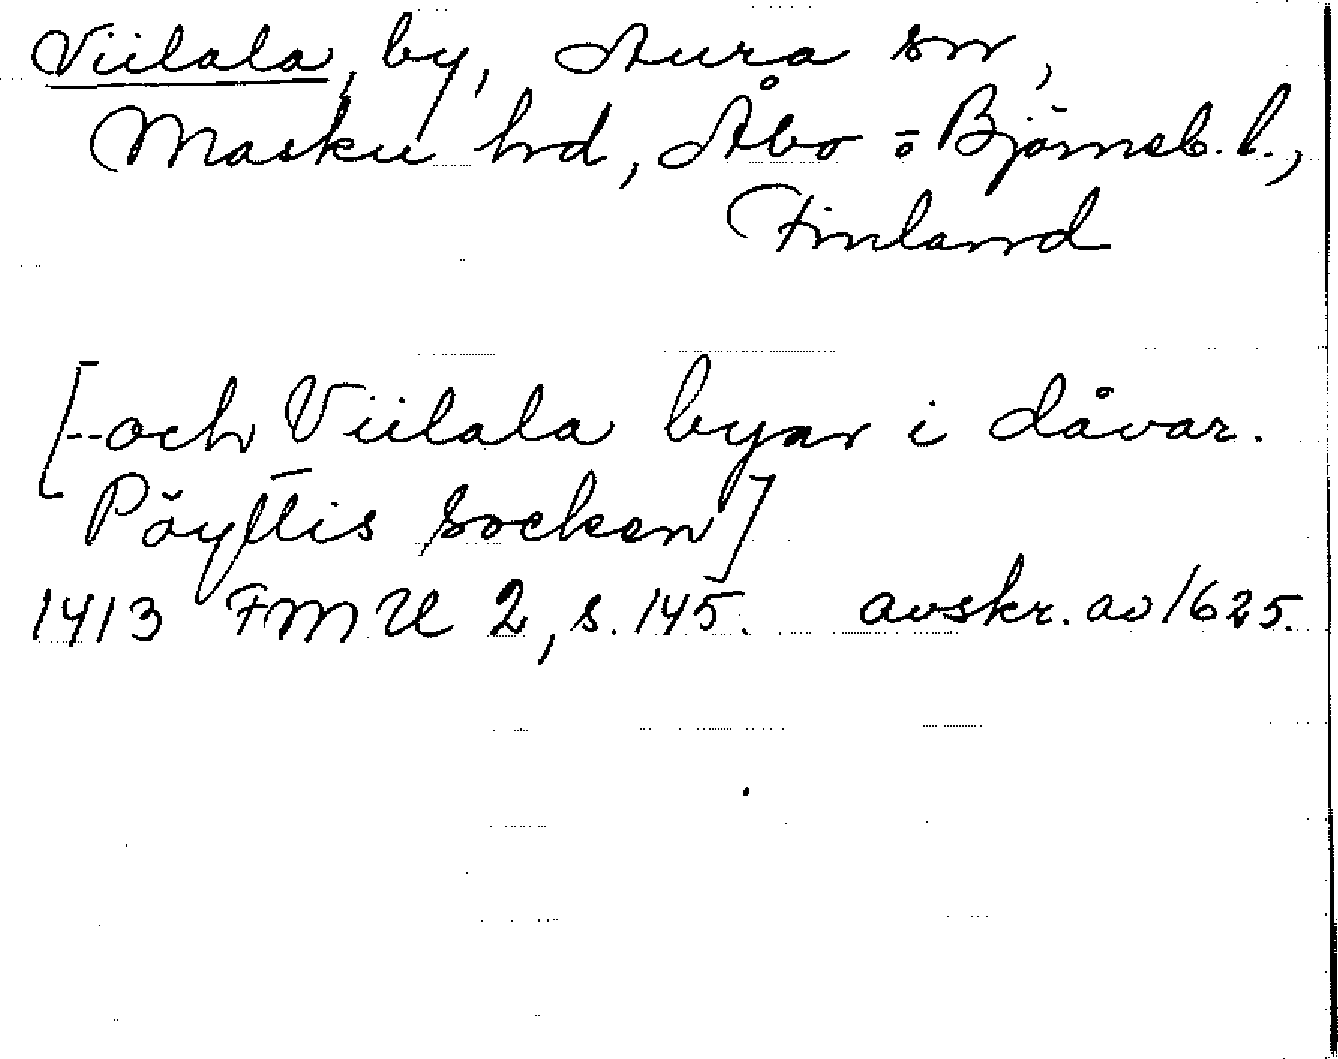 Viilala, by, Aura sn,
Masku hd, Åbo o Björneb. l.,
Finland
[--och Viilala byar i dåvar.
Pöyttis socken]
1413 FMU 2, s. 145. avskr. av 1625.